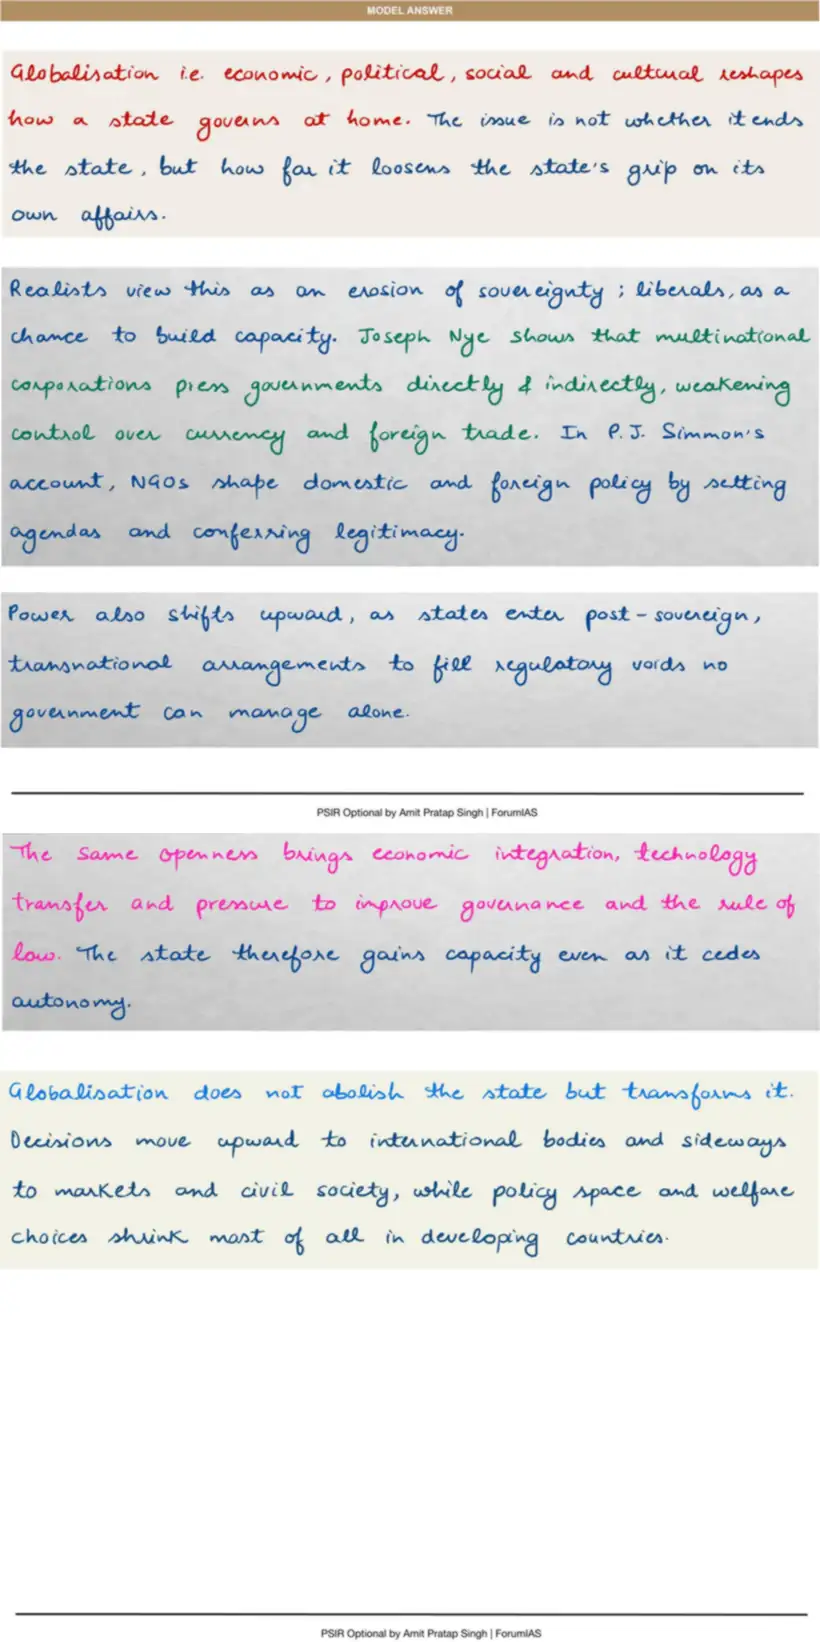 MODEL ANSWER
Globalisation i.e. economic, political, social and cultural reshapes
how a state governs at home. The issue is not whether it ends
the state, but how far it loosens the state's grip on its
own affairs.
Realists view this as an erosion of sovereignty; liberals, as a
chance to build capacity. Joseph Nye shows that multinational
corporations press governments directly & indirectly, weakening
control over currency and foreign trade. In P.J. Simmon's
account, NGOs shape domestic and foreign policy by setting
agendas and conferring legitimacy.
Power also shifts upward, as states enter post-sovereign,
transnational arrangements to fill regulatory voids no
government can manage alone.
PSIR Optional by Amit Pratap Singh | ForumIAS
The same openness brings economic integration, technology
transfer and pressure to improve governance and the rule of
law. The state therefore gains capacity even as it cedes
autonomy.
Globalisation does not abolish the state but transforms it.
Decisions move upward to international bodies and sideways
to markets and civil society, while policy space and welfare
choices shrink most of all in developing countries.
PSIR Optional by Amit Pratap Singh | ForumIAS